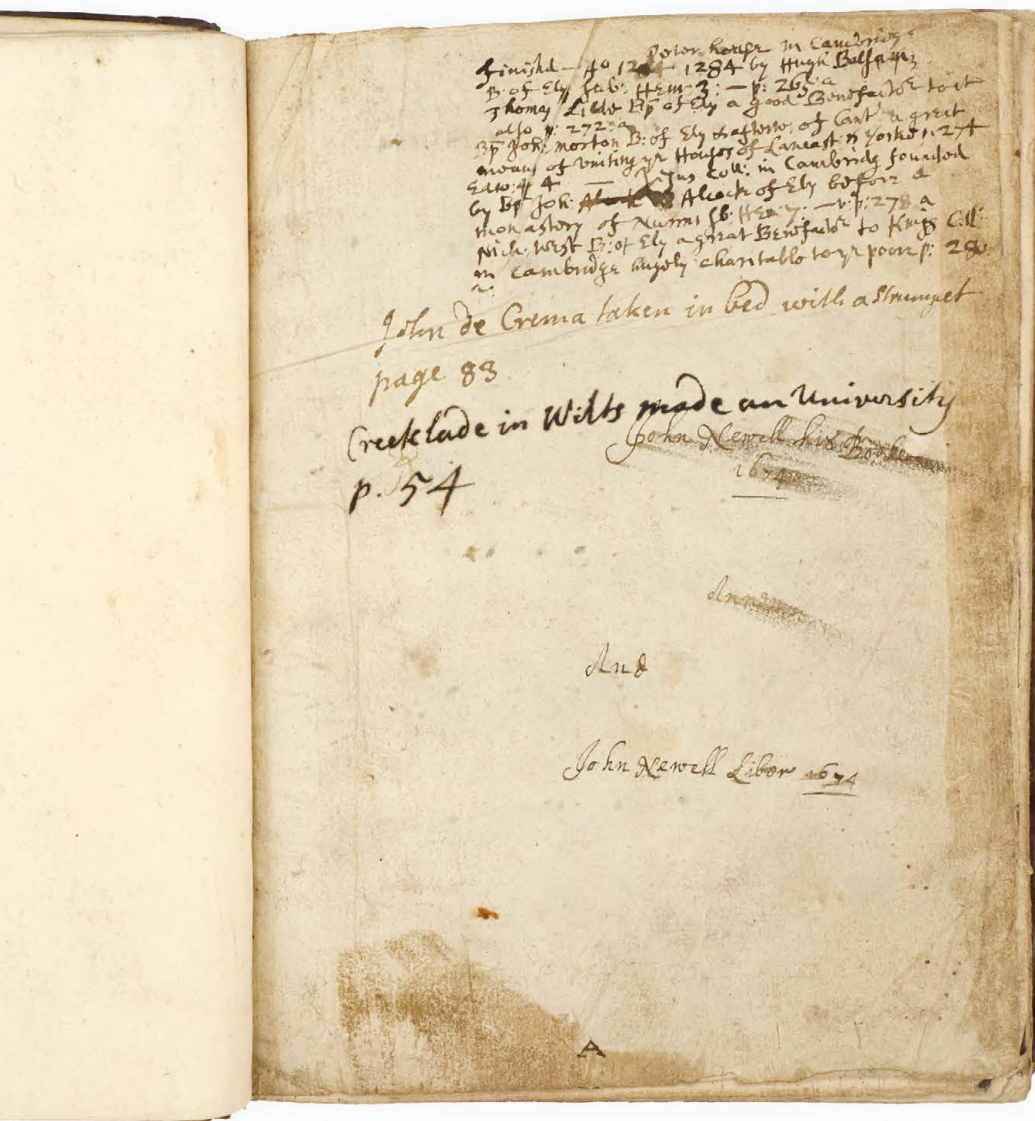 Peter house in Cambridge
finishd – Ao 1284 by Hugh Balsam
B: of Ely sub: Hen: 3: – p: 265: a
Thomas Lilde Bp of Ely a good Benefactor to it
also p: 272: a
Bp Joh: morton B: of Ely & afterw: of Cant' a great
means of uniting ye Houses of Lancast: & Yorke p: 274
Edw: 4
Jesus Coll: in Cambridg founded
by Bp Joh: Alcock of Ely before a
monastery of Nunns sb: Hen: 7: – v: p: 278 a
Nich: West B: of Ely a great Benefactor to Kings Coll:
in Cambridge hugely charitable to ye poor p: 280
John de Crema taken in bed with a strumpet
page 83
Creeklade in Wilts made an University
John Newell his Booke
p. 54
1674
And
John Newell Liber 1674
A